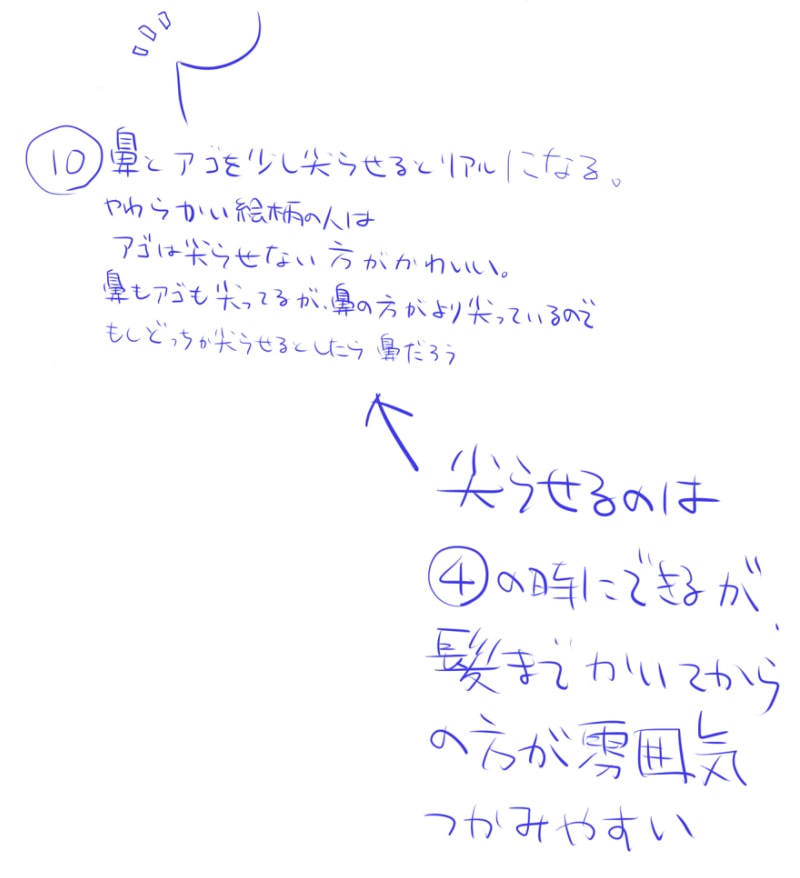 ⑩ 鼻とアゴを少し尖らせるとリアルになる。
やわらかい絵柄の人は
アゴは尖らせない方がかわいい。
鼻もアゴも尖ってるが、鼻の方がより尖っているので
もしどっちか尖らせるとしたら鼻だろう
尖らせるのは
④の時にできるが、
髪までかいてから
の方が雰囲気
つかみやすい